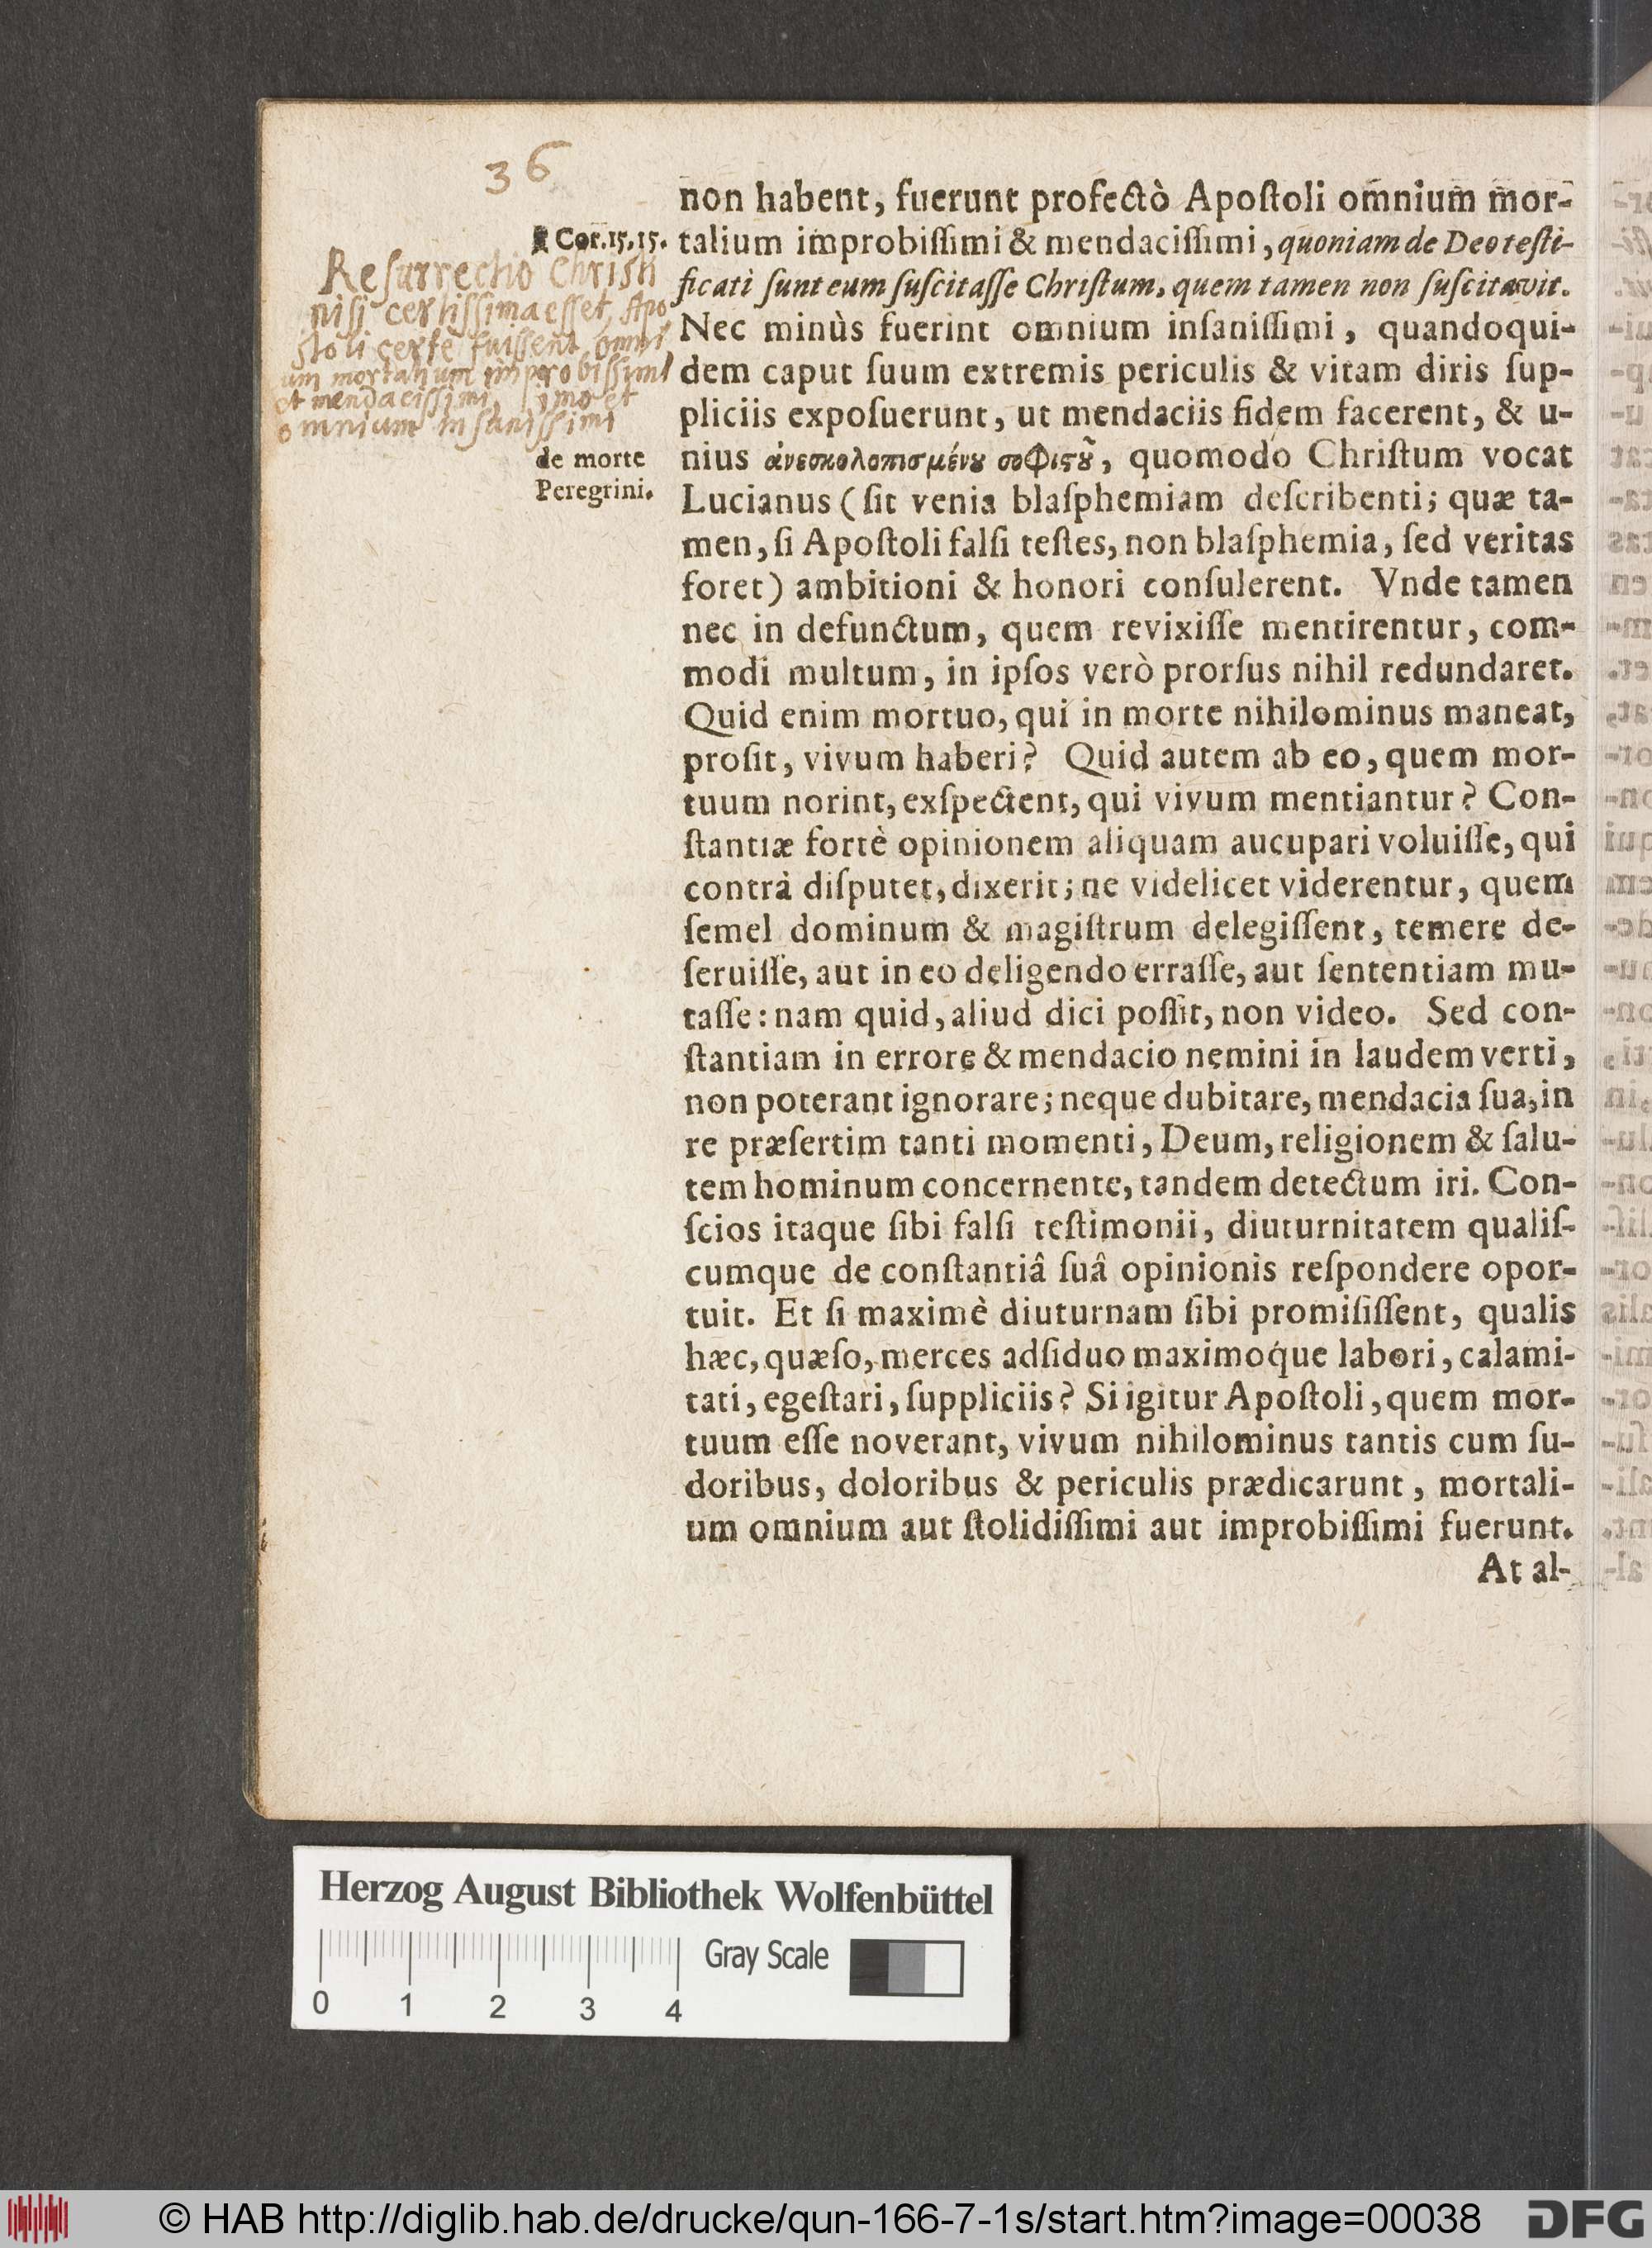 36
1 Cor. 15. 15.
Resurrectio Christi
nisi certissima esset, Apo
stoli certe fuissent omni
um mortalium improbissimi
et mendacissimi, imo et
omnium insanissimi
de morte
Peregrini.
non habent, fuerunt profectò Apoſtoli omnium mor-
talium improbiſſimi & mendaciſſimi, quoniam de Deo teſti-
ficati ſunt eum ſuſcitaſſe Chriſtum, quem tamen non ſuſcitavit.
Nec minùs fuerint omnium inſaniſſimi, quandoqui-
dem caput ſuum extremis periculis & vitam diris ſup-
pliciis expoſuerunt, ut mendaciis fidem facerent, & u-
nius ἀνεσκολοπισμένȣ σοφιϛȣ͂, quomodo Chriſtum vocat
Lucianus (ſit venia blaſphemiam deſcribenti; quæ ta-
men, ſi Apoſtoli falſi teſtes, non blaſphemia, ſed veritas
foret) ambitioni & honori conſulerent. Vnde tamen
nec in defunctum, quem revixiſſe mentirentur, com-
modi multum, in ipſos verò prorſus nihil redundaret.
Quid enim mortuo, qui in morte nihilominus maneat,
proſit, vivum haberi? Quid autem ab eo, quem mor-
tuum norint, exſpectent, qui vivum mentiantur? Con-
ſtantiæ fortè opinionem aliquam aucupari voluiſſe, qui
contrà diſputet, dixerit; ne videlicet viderentur, quem
ſemel dominum & magiſtrum delegiſſent, temere de-
ſeruiſſe, aut in eo deligendo erraſſe, aut ſententiam mu-
taſſe: nam quid, aliud dici poſſit, non video. Sed con-
ſtantiam in errore & mendacio nemini in laudem verti,
non poterant ignorare; neque dubitare, mendacia ſua, in
re præſertim tanti momenti, Deum, religionem & ſalu-
tem hominum concernente, tandem detectum iri. Con-
ſcios itaque ſibi falſi teſtimonii, diuturnitatem qualiſ-
cumque de conſtantiâ ſuâ opinionis reſpondere opor-
tuit. Et ſi maximè diuturnam ſibi promiſiſſent, qualis
hæc, quæſo, merces adſiduo maximoq́ue labori, calami-
tati, egeſtati, ſuppliciis? Si igitur Apoſtoli, quem mor-
tuum eſſe noverant, vivum nihilominus tantis cum ſu-
doribus, doloribus & periculis prædicarunt, mortali-
um omnium aut ſtolidiſſimi aut improbiſſimi fuerunt.
At al-
Herzog August Bibliothek Wolfenbüttel
0 1 2 3 4 Gray Scale
© HAB http://diglib.hab.de/drucke/qun-166-7-1s/start.htm?image=00038
DFG